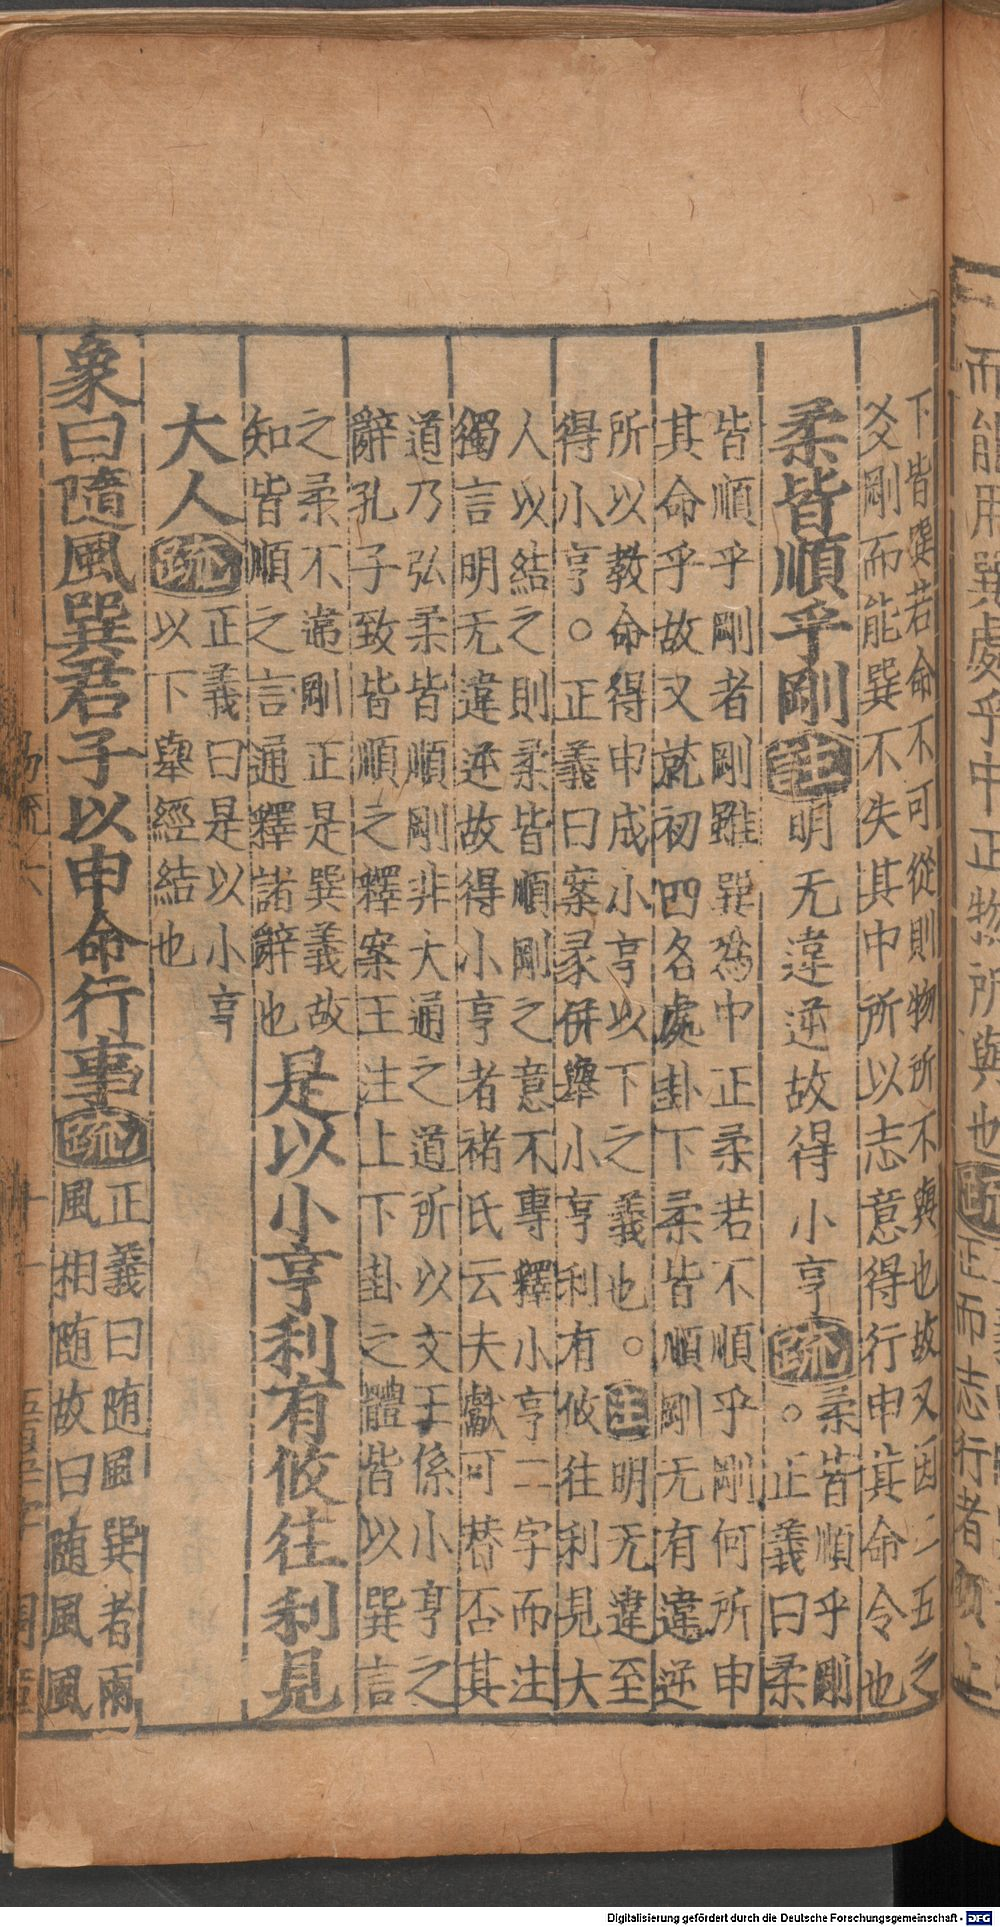 而能用巽處乎中正物所與也疏正而志行者須上
下皆巽若命不可從則物所不與也故又因二五之
爻剛而能巽不失其中所以志意得行申其命令也
柔皆順乎剛注明无違逆故得小亨疏柔皆順乎剛
。正義曰柔
皆順乎剛者剛雖巽為中正柔若不順乎剛何所申
其命乎故又就初四名處卦下柔皆順剛无有違逆
所以教命得申成小亨以下之義也。注明无違至
得小亨。正義曰案彖併舉小亨利有攸往利見大
人以結之則柔皆順剛之意不專釋小亨二字而注
獨言明无違逆故得小亨者褚氏云夫獻可替否其
道乃弘柔皆順剛非大通之道所以文王係小亨之
辭孔子致皆順之釋案王注上下卦之體皆以巽言
之柔不違剛正是巽義故
知皆順之言通釋諸辭也是以小亨利有攸往利見
大人疏正義曰是以小亨
以下舉經結也
象曰隨風巽君子以申命行事疏正義曰随風巽者兩
風相随故曰随風風
易疏六
十一
Digitalisierung gefördert durch die Deutsche Forschungsgemeinschaft - DFG